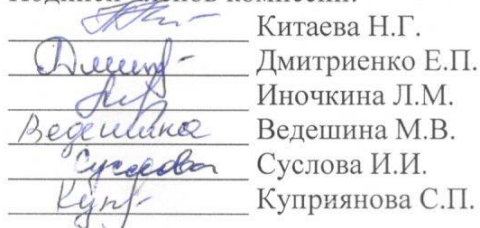 Китаева Н.Г.
Дмитриенко Е.П.
Иночкина Л.М.
Ведешина Ведешина М.В.
Суслова Суслова И.И.
Куприянова С.П.